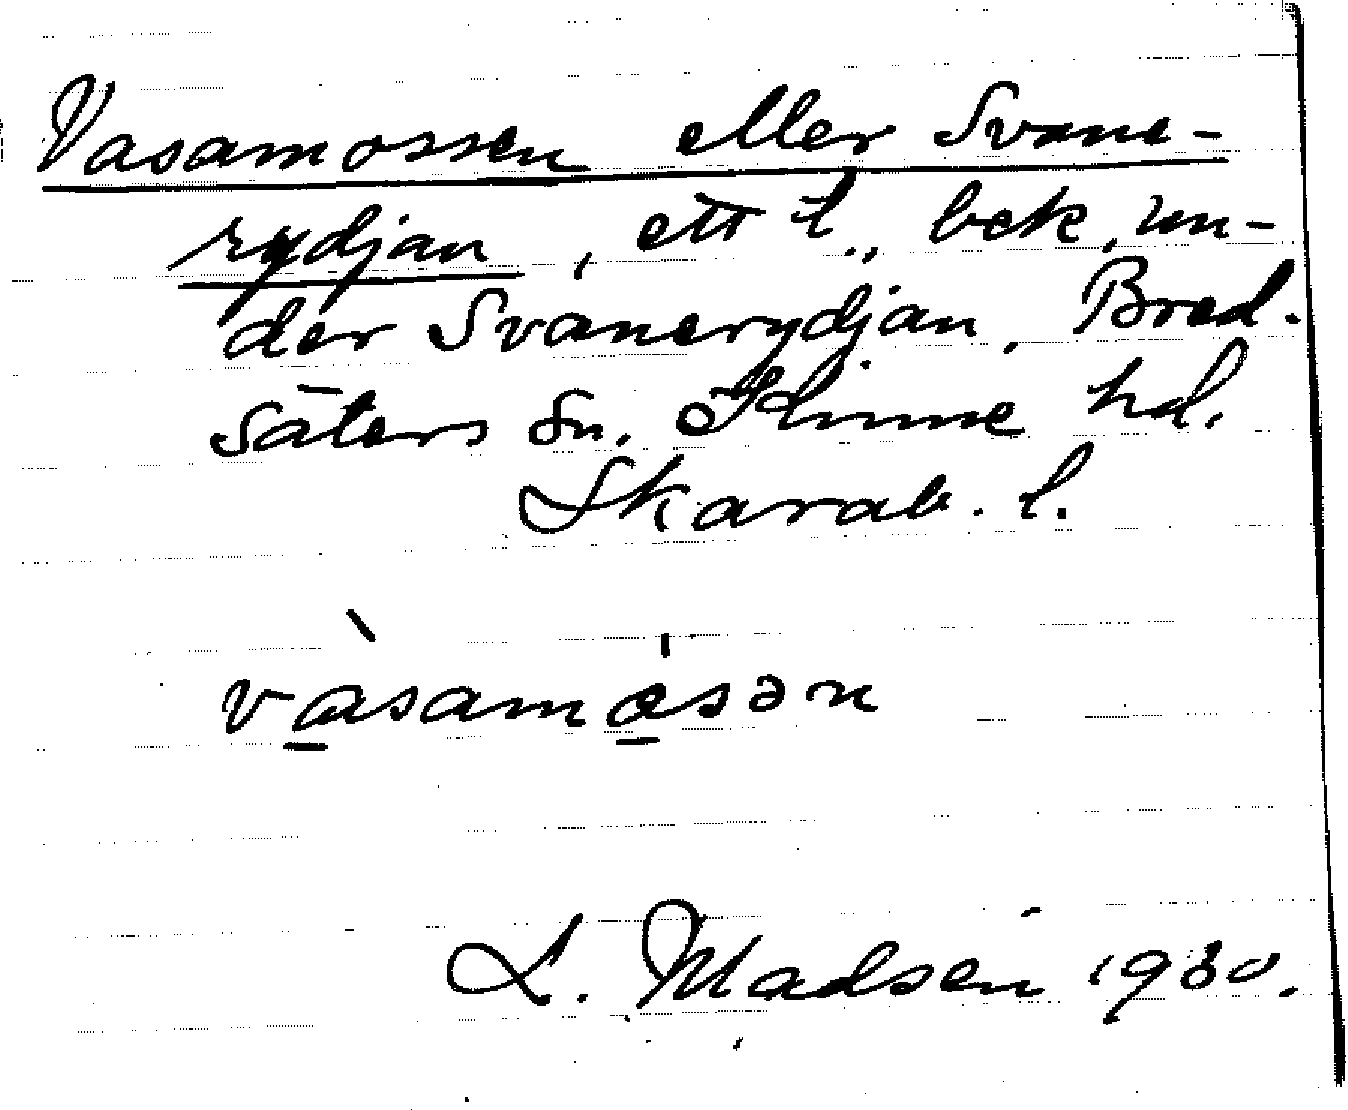 Vasamossen eller Svane-
rydjan, ett t., bek. un-
der Svanerydjan, Bred-
säters sn. Kinne hd.
Skarab. l.
vàsamɵsən
L. Madsén 1930.